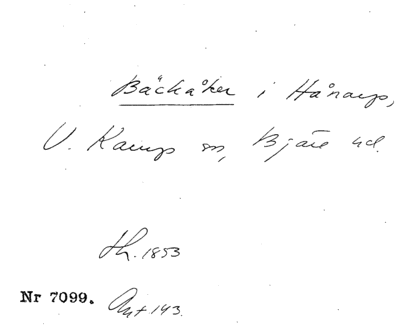 Bäckåker i Hånarp,
V. Karup sn, Bjäre hd.
th. 1853
Nr 7099. Ant 143.